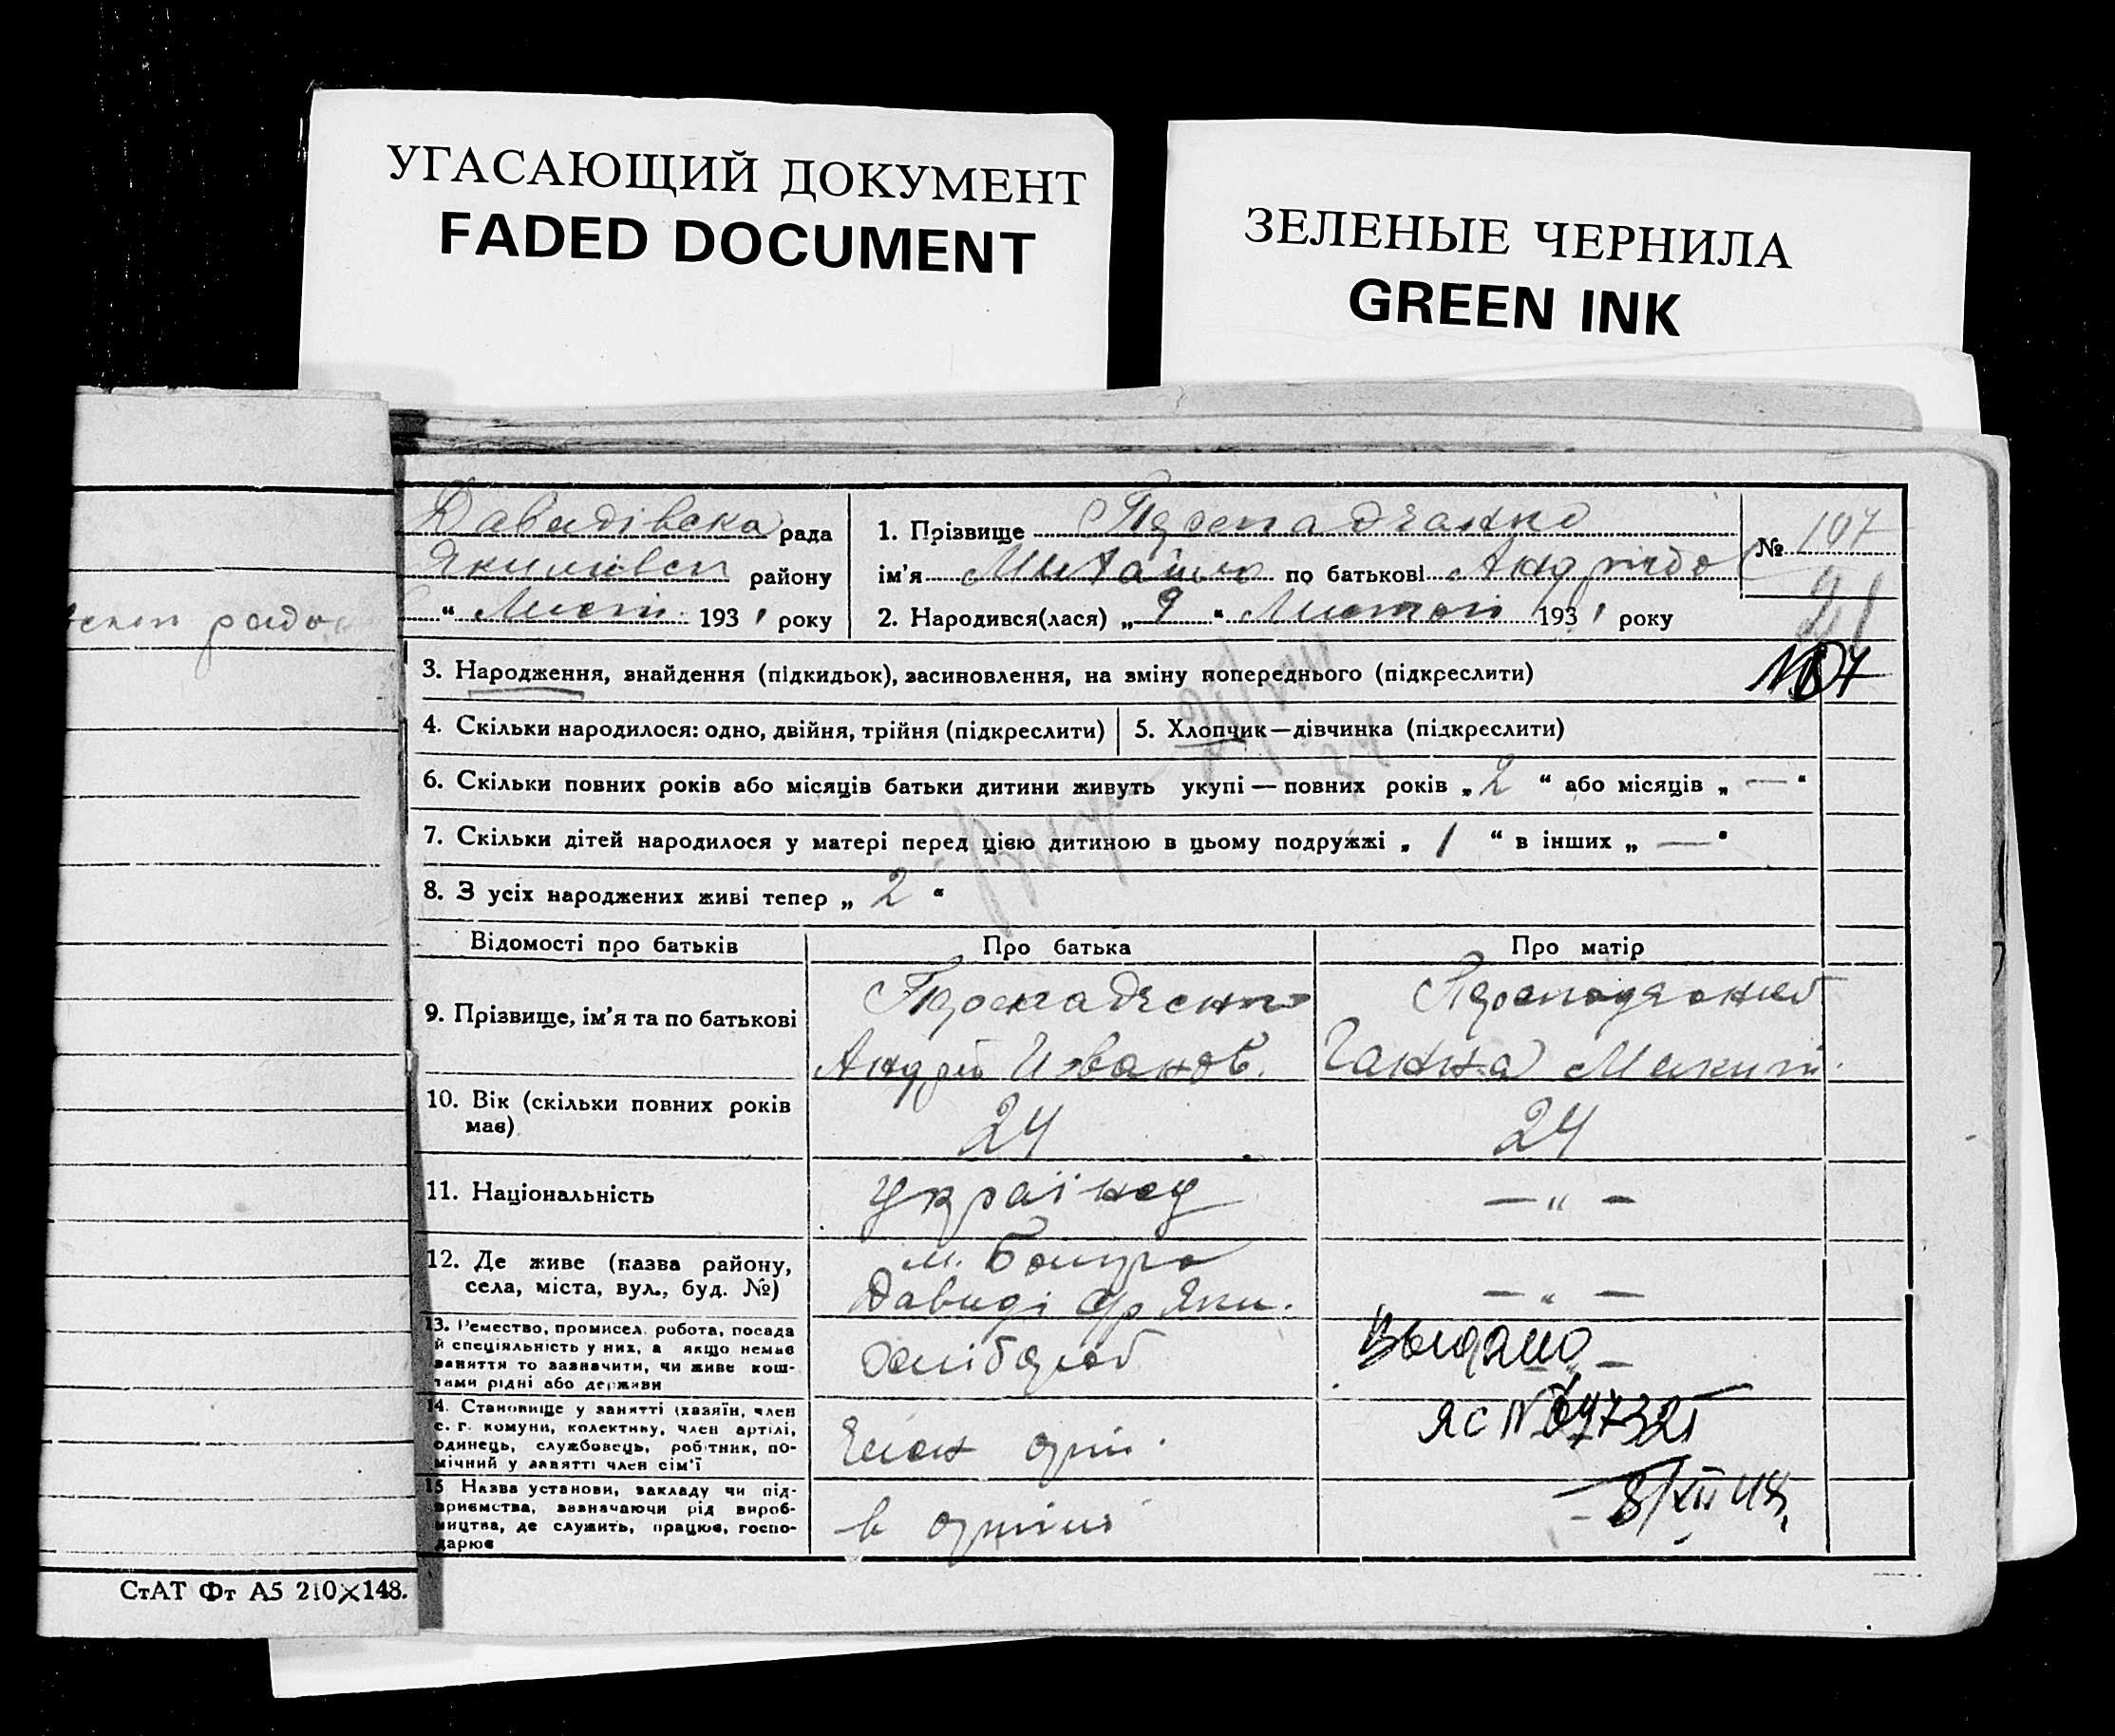 УГАСАЮЩИЙ ДОКУМЕНТ
FADED DOCUMENT
ЗЕЛЕНЫЕ ЧЕРНИЛА
GREEN INK
Давидівска рада
району
" Лист. 193 1 року
радою
1. Прізвище
ім'я Михайло по батькові
2. Народився(лася) „ 9 " Лютого 193 1 року
№ 107
21
3. Народження, знайдення (підкидьок), засиновлення, на зміну попереднього (підкреслити)
N107
4. Скільки народилося: одно, двійня, трійня (підкреслити)
5. Хлопчик—дівчинка (підкреслити)
6. Скільки повних років або місяців батьки дитини живуть укупі — повних років „ 2 " або місяців „ — "
7. Скільки дітей народилося у матері перед цією дитиною в цьому подружжі „ 1 " в інших „ — "
8. З усіх народжених живі тепер „ 2 "
Відомості про батьків
Про батька
Про матір
9. Прізвище, ім'я та по батькові
Андрій Иванов.
Ганна
10. Вік (скільки повних років має)
24
24
11. Національність
україн
— " —
12. Де живе (назва району, села, міста, вул., буд. №)
Давиді
— " —
13. Ремество, промисел, робота, посада
й спеціяльність у них, а якщо немає
заняття то зазначити, чи живе кош-
тами рідні або держави
хлібороб
Выдано
14. Становище у занятті (хазяїн, член
с. г. комуни, колективу, член артілі,
одинець, службовець, робітник, по-
мічний у занятті член сім'ї
Член арт.
ЯС N
15 Назва установи, закладу чи під-
приємства, зазначаючи рід вироб-
ництва, де служить, працює, госпо-
дарює
в артілі
8/XII 44
СтАТ Фт А5 210×148.